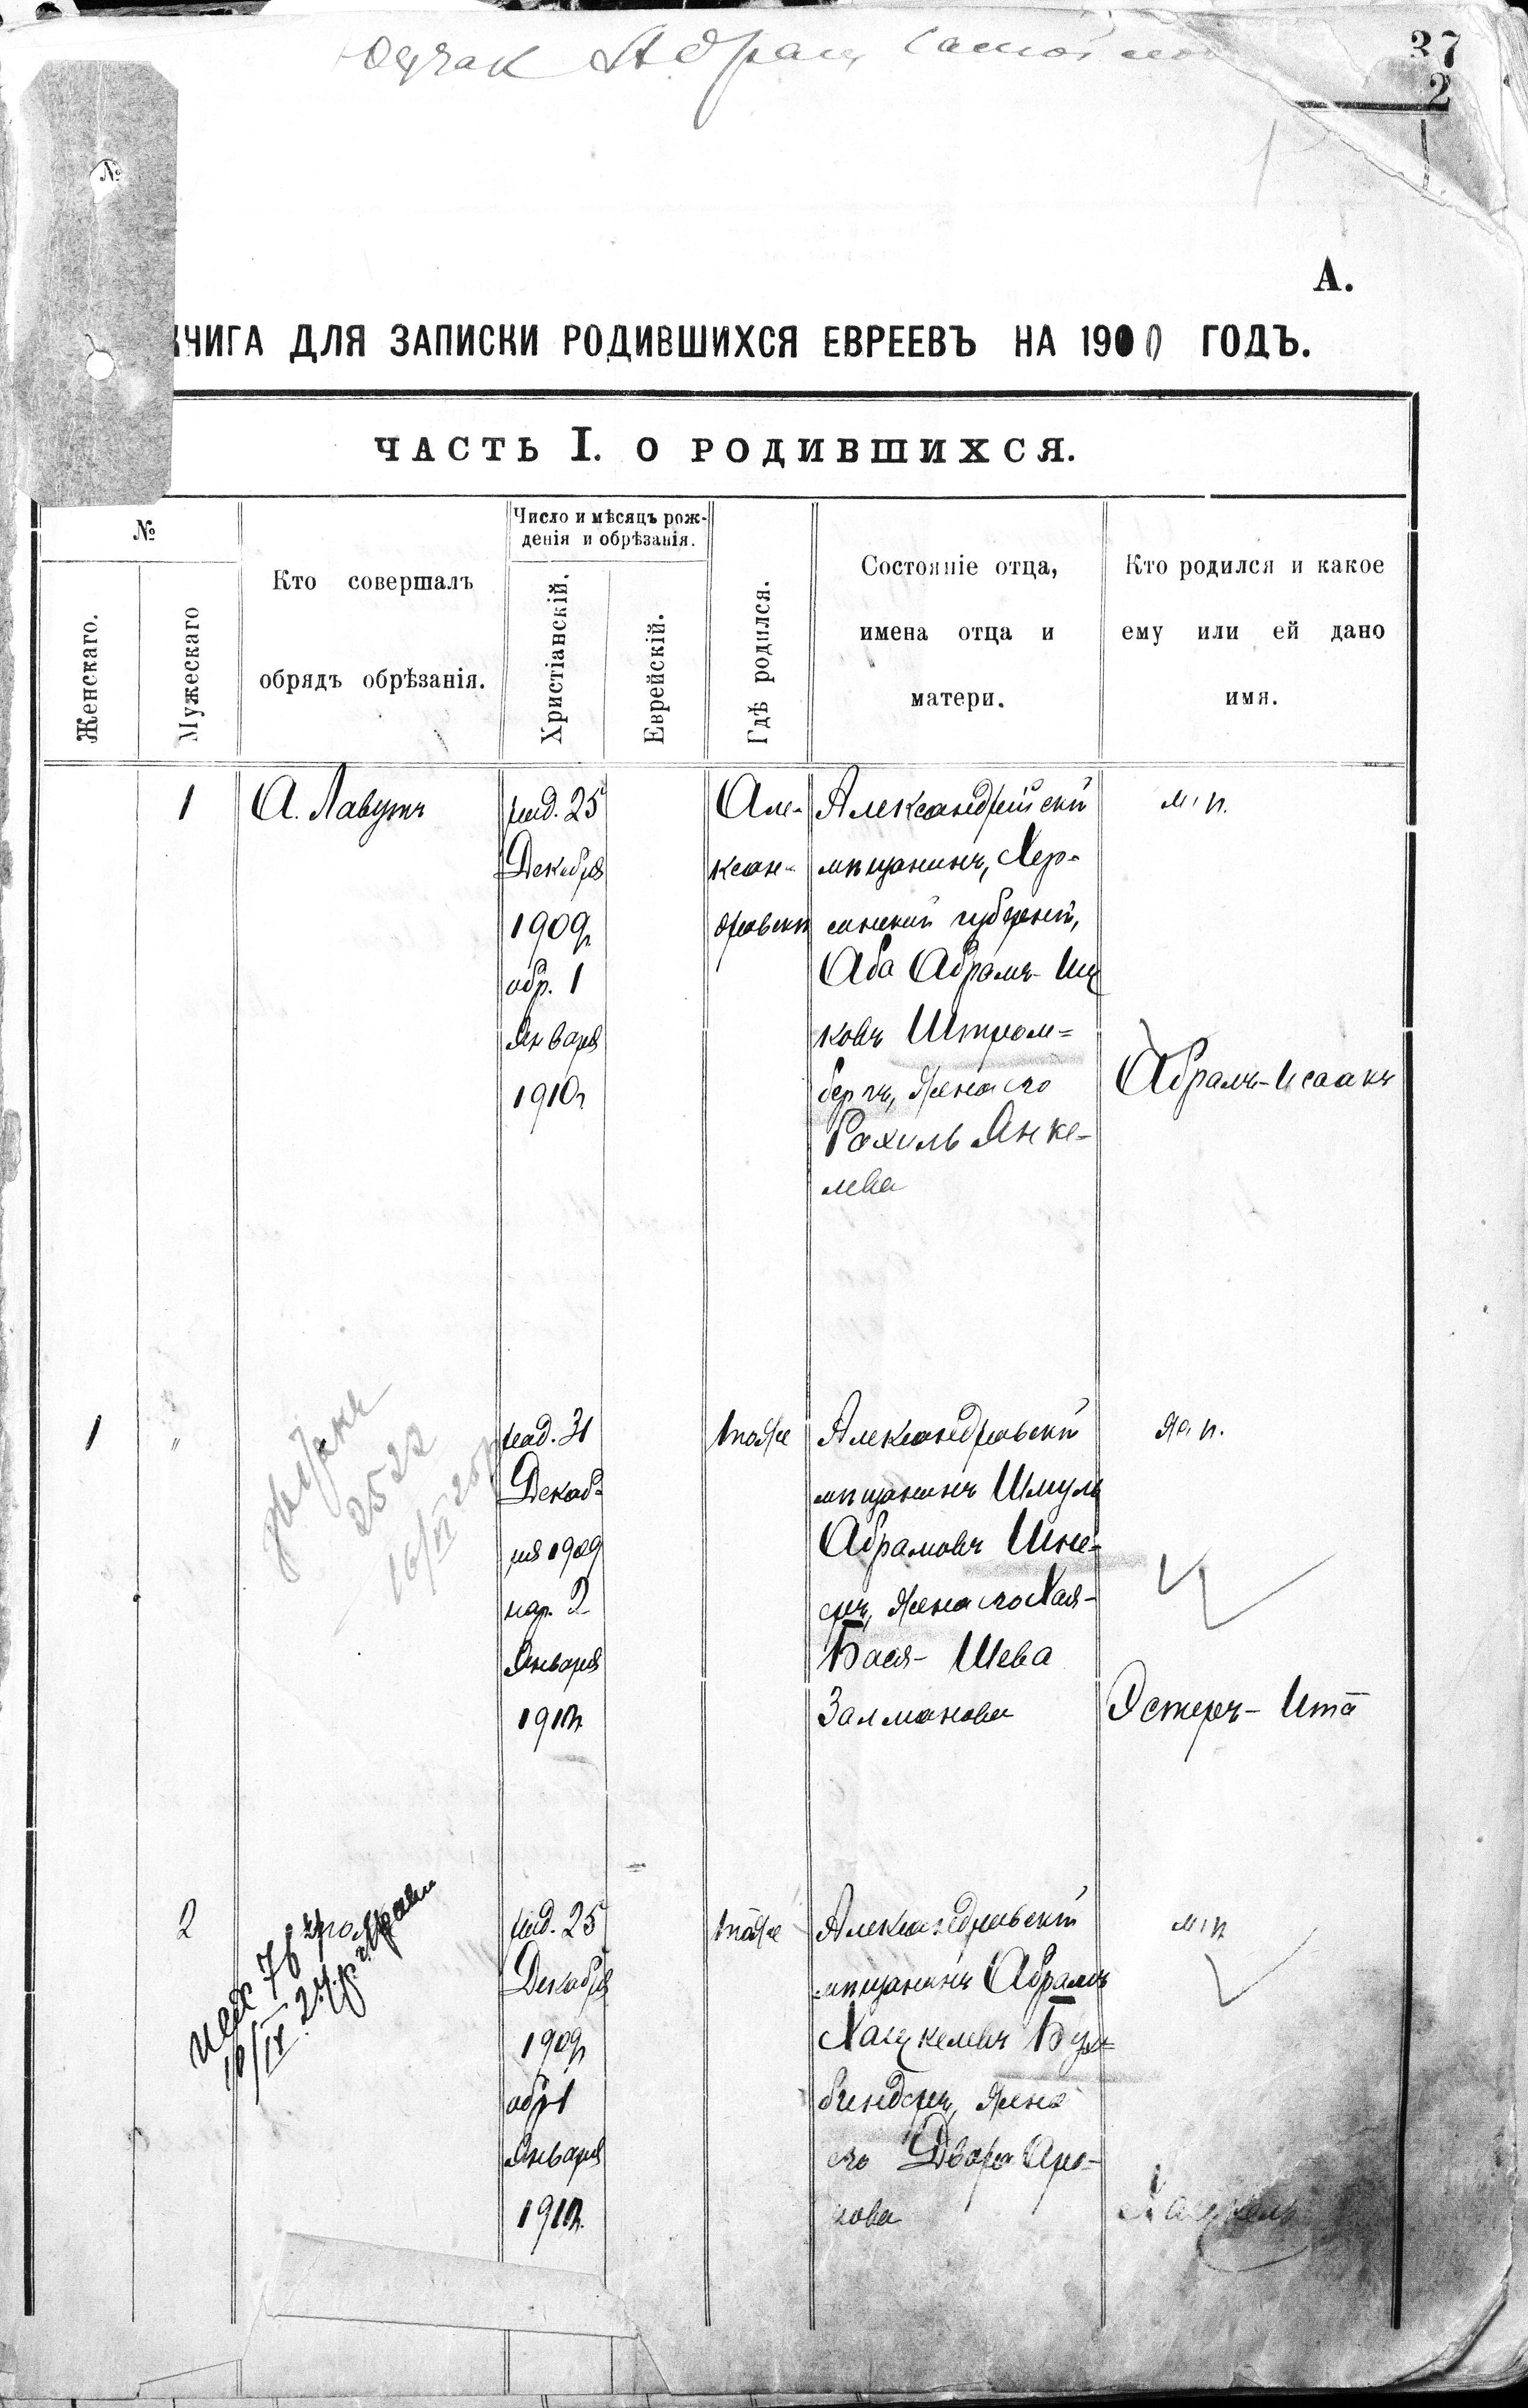 37
2
№
А.
КНИГА ДЛЯ ЗАПИСКИ РОДИВШИХСЯ ЕВРЕЕВЪ НА 1900 ГОДЪ.
ЧАСТЬ I. О РОДИВШИХСЯ.
№
Женскаго.
Мужескаго
Кто совершалъ
обрядъ обрѣзанія.
Число и мѣсяцъ рож-
денія и обрѣзанія.
Христіанскій.
Еврейскій.
Гдѣ родился.
Состояніе отца,
имена отца и
матери.
Кто родился и какое
ему или ей дано
имя.
1
А. Лавутъ
род. 25
Декабря
1909г
обр. 1
Января
1910г
Але-
ксан-
дровскѣ
мѣщанинъ, Хер-
сонской губерніи,
Аба Абрамъ- Иц
ковъ Штром-
бергъ, жена его
Рохиль Янке-
лева
м. п.
Абрамъ-Исаакъ
1
"
2522
род. 31
Декаб-
ря 1909
нар. 2
Января
1910г
тоже
Александровскій
мѣщанинъ Шмуль
Абрамовъ
жена его Хая-
Бася- Шева
Залманова
ж. п.
Эстеръ- Ита
2
род. 25
Декабря
1909г
обр 1
Января
1910г.
тоже
Александровскій
мѣщанинъ Абрамъ
Хацкелевъ Бух-
биндеръ, жена
его Двора Аро-
нова
м. п
Хацкель